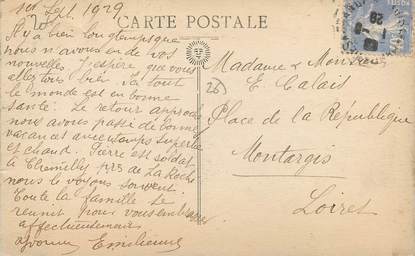 1er Sept. 1929
CARTE POSTALE
Il y a bien longtemps que
nous n'avons eu de vos
nouvelles. J'espère que vous
allez tous bien. Ici tout
le monde est en bonne
santé. Le retour approche
nous avons passé de bonnes
vacances avec un temps superbe
et chaud. Pierre est soldat
à Chemilly près de La Roche
nous le voyons souvent.
Toute la famille se
réunit pour vous embrasser
affectueusement
Yvonne Emilienne
Madame & Monsieur
E. Calais
26
Place de la République
Montargis
Loiret